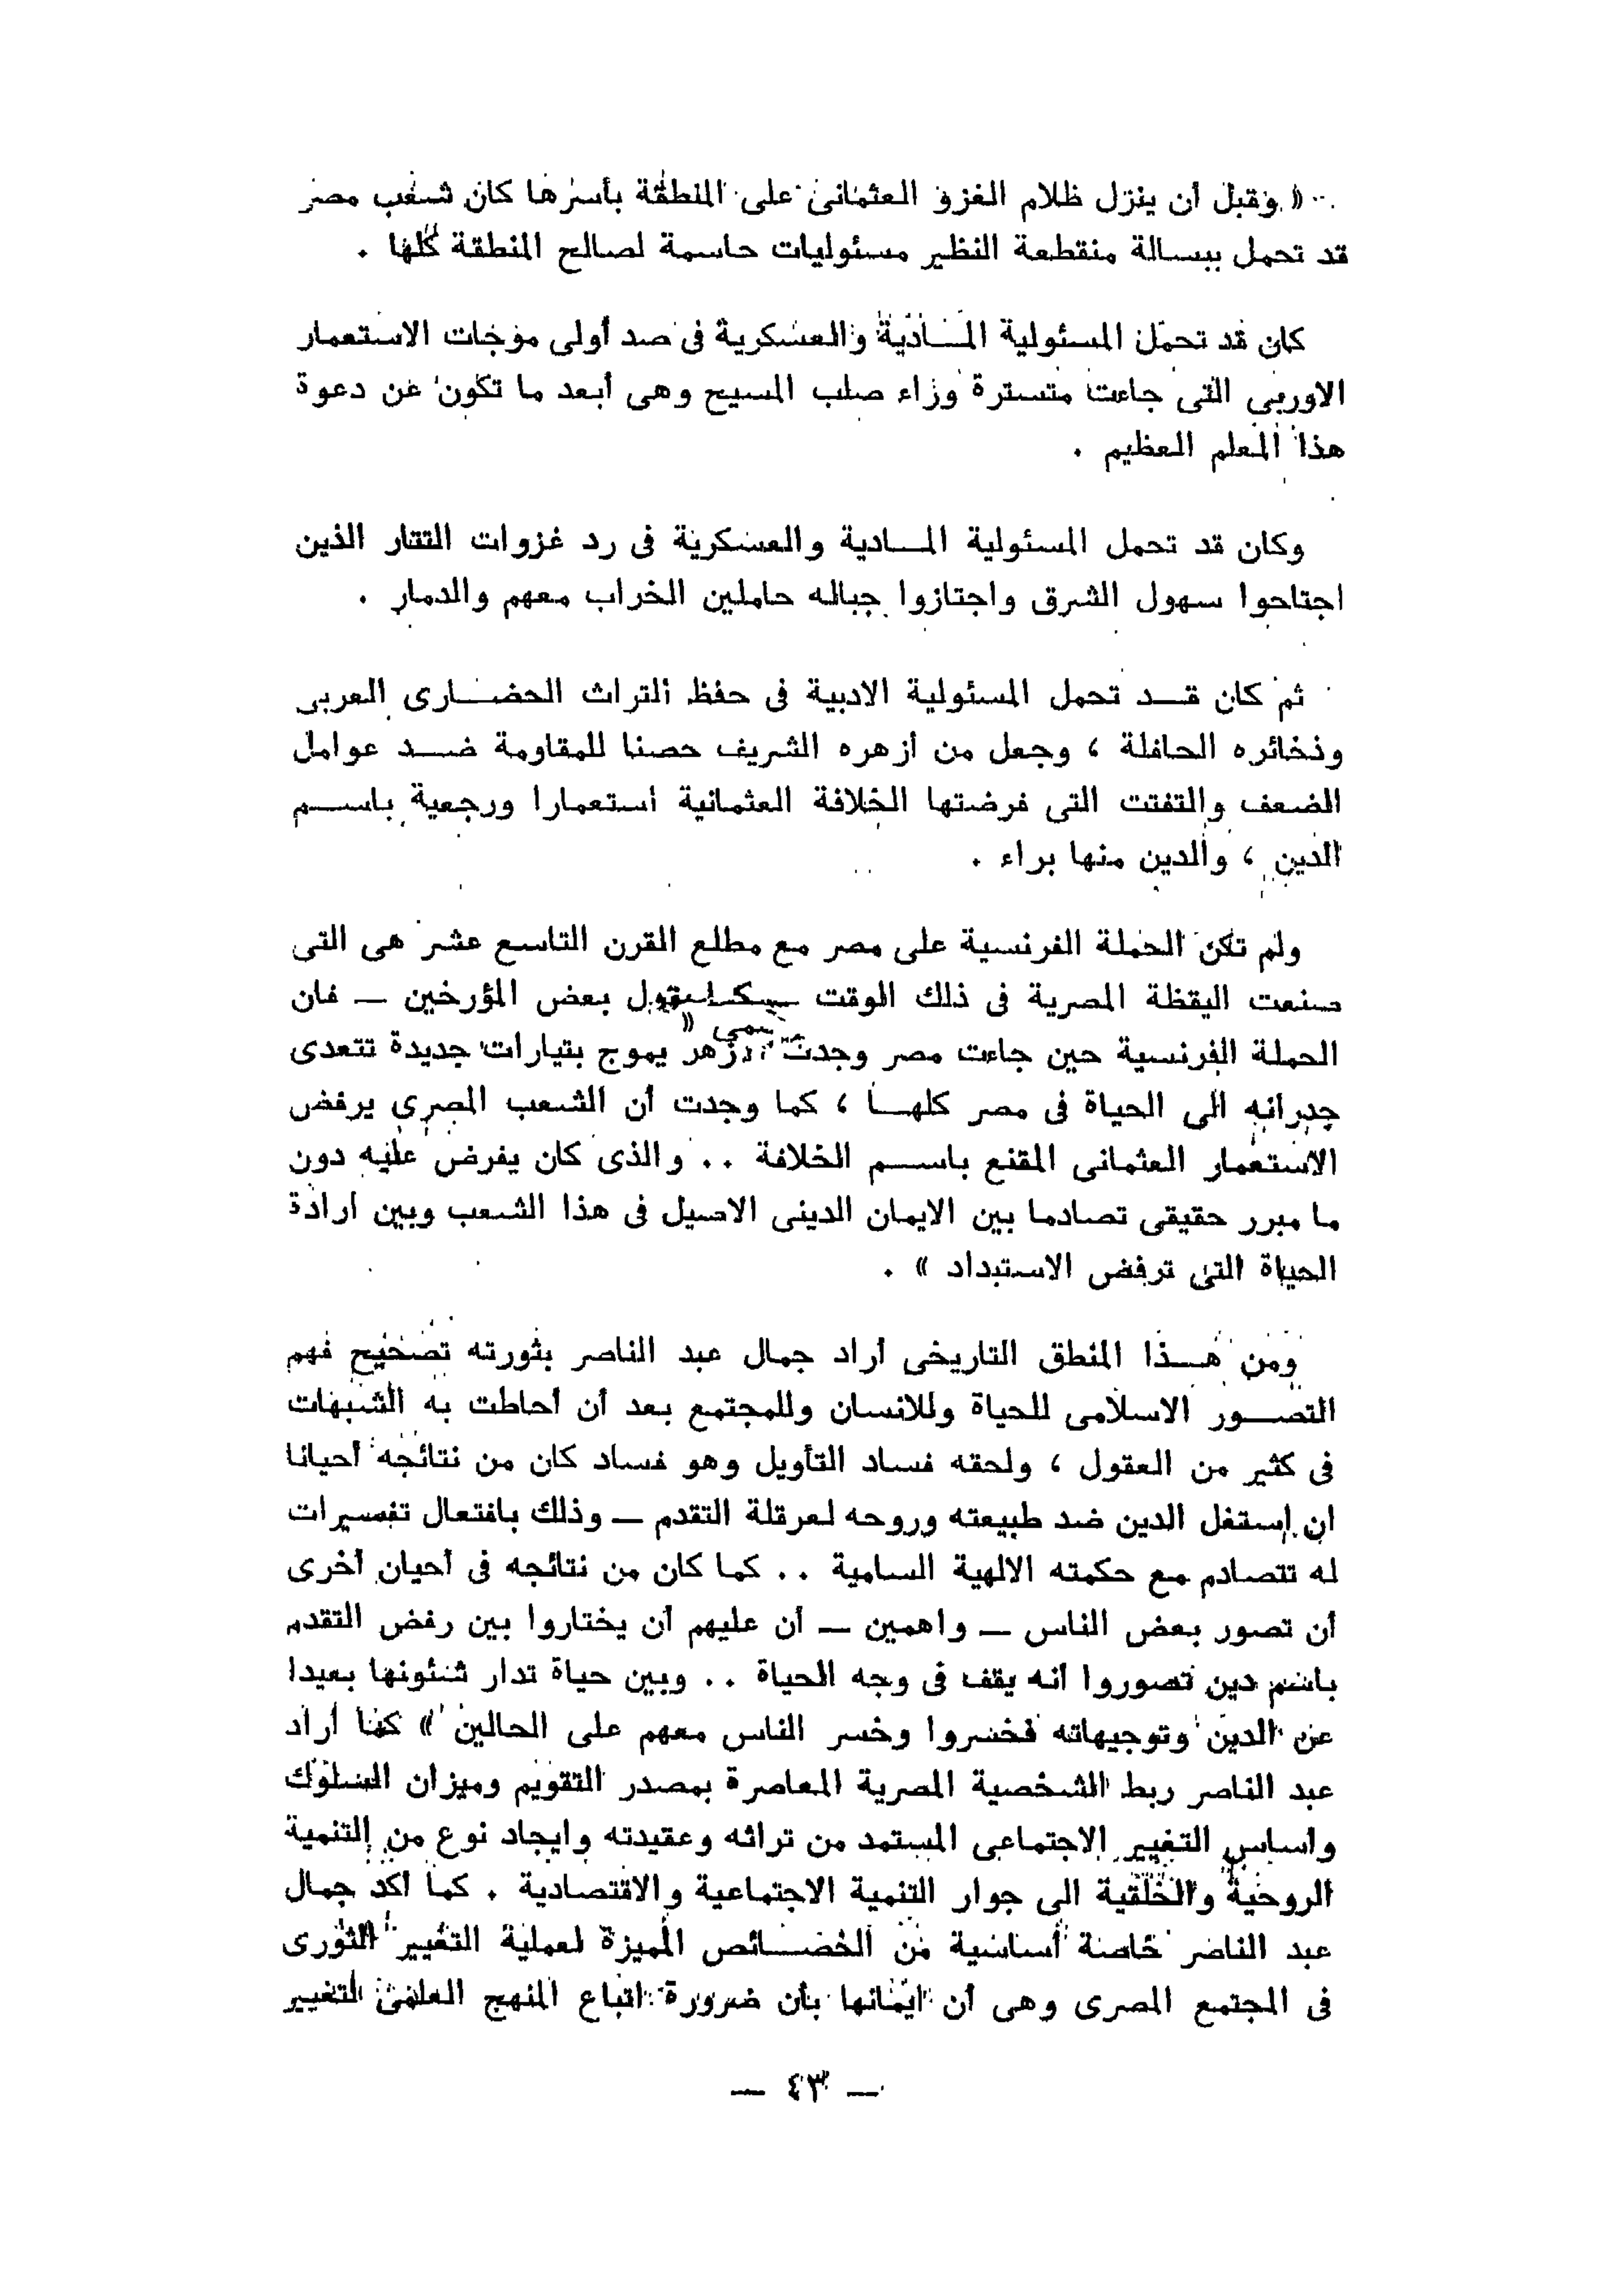 « وقبل أن ينزل ظلام الغزو العثمانى على المنطقة بأسرها كان شعب مصر
قد تحمل ببسالة منقطعة النظير مسئوليات حاسمة لصالح المنطقة كلها .
كان قد تحمل المسئولية المــادية والعسكرية فى صد أولى موجات الاستعمار
الاوربى التى جاءت متسترة وراء صلب المسيح وهى أبعد ما تكون عن دعوة
هذا المعلم العظيم .
وكان قد تحمل المسئولية المــادية والعسكرية فى رد غزوات التتار الذين
اجتاحوا سهول الشرق واجتازوا جباله حاملين الخراب معهم والدمار .
ثم كان قــد تحمل المسئولية الادبية فى حفظ التراث الحضــارى العربى
وذخائره الحافلة ، وجعل من أزهره الشريف حصنا للمقاومة ضــد عوامل
الضعف والتفتت التى فرضتها الخلافة العثمانية استعمارا ورجعية باســم
الدين ، والدين منها براء .
ولم تكن الحملة الفرنسية على مصر مع مطلع القرن التاسع عشر هى التى
صنعت اليقظة المصرية فى ذلك الوقت يقول بعض المؤرخين — فان
الحملة الفرنسية حين جاءت مصر وجدت الأزهر يموج بتيارات جديدة تتعدى
جدرانه الى الحياة فى مصر كلهــا ، كما وجدت أن الشعب المصرى يرفض
الاستعمار العثمانى المقنع باســم الخلافة .. والذى كان يفرض عليه دون
ما مبرر حقيقى تصادما بين الايمان الدينى الاصيل فى هذا الشعب وبين ارادة
الحياة التى ترفض الاستبداد » .
ومن هــذا المنطق التاريخى أراد جمال عبد الناصر بثورته تصحيح فهم
التصــور الاسلامى للحياة وللانسان وللمجتمع بعد أن أحاطت به الشبهات
فى كثير من العقول ، ولحقه فساد التأويل وهو فساد كان من نتائجه أحيانا
ان استغل الدين ضد طبيعته وروحه لعرقلة التقدم — وذلك بافتعال تفسيرات
له تتصادم مع حكمته الالهية السامية .. كما كان من نتائجه فى أحيان أخرى
أن تصور بعض الناس — واهمين — أن عليهم أن يختاروا بين رفض التقدم
باسم دين تصوروا أنه يقف فى وجه الحياة .. وبين حياة تدار شئونها بعيدا
عن الدين وتوجيهاته فخسروا وخسر الناس معهم على الحالين » كما أراد
عبد الناصر ربط الشخصية المصرية المعاصرة بمصدر التقويم وميزان السلوك
وأساس التغيير الاجتماعى المستمد من تراثه وعقيدته وايجاد نوع من التنمية
الروحية والخلقية الى جوار التنمية الاجتماعية والاقتصادية . كما أكد جمال
عبد الناصر خاصة أساسية من الخصــائص المميزة لعملية التغيير الثورى
فى المجتمع المصرى وهى أن ايمانها بأن ضرورة اتباع المنهج العلمى لتغيير
— ٤٣ —